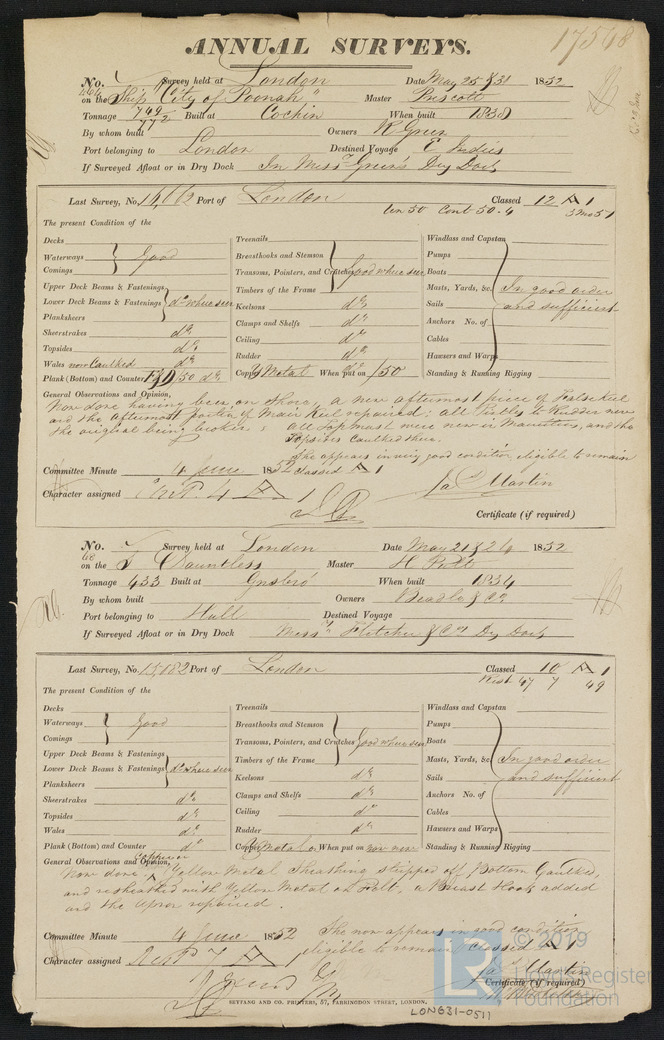 17568
ANNUAL SURVEYS.
No. Survey held at London Date May 25 & 31 1852
on the Ship "City of Poonah" Master Prescott
Tonnage 749 772 Built at Cochin When built 1838
By whom built Owners R Green
Port belonging to London Destined Voyage E Indies
If Surveyed Afloat or in Dry Dock In Messrs Green's Dry Dock
Last Survey, No. Port of London Classed 12 A 1
Cont 50. 4
The present Condition of the
Decks
Waterways Good
Comings
Upper Deck Beams & Fastenings
Lower Deck Beams & Fastenings do where seen
Planksheers
Sheerstrakes do
Topsides do
Wales now Caulked do
Plank (Bottom) and Counter 50 do
Treenails
Breasthooks and Stemson
Transoms, Pointers, and Crutches Good where seen
Timbers of the Frame
Keelsons do
Clamps and Shelfs do
Ceiling do
Rudder do
Copper Y Metal When put on /50
Windlass and Capstan
Pumps
Boats
Masts, Yards, &c. In good order
Sails and sufficient
Anchors No. of
Cables
Hawsers and Warps
Standing & Running Rigging
General Observations and Opinion,
Now done having been on shore, a new aftermost piece of False Keel
and the aftermost portion of Main Keel repaired: all Pintles to Rudder new
the original being broken: all Topmast were new in Mauritius, and the
Topsides Caulked there.
She appears in very good condition eligible to remain
Committee Minute 4 June 1852 classed A 1
Character assigned Cont. 4 A 1 Jas Martin
Certificate (if required)
No. Survey held at London Date May 21 & 26 1852
on the S Dauntless Master H Pott
Tonnage 433 Built at Gnsbro' When built 1834
By whom built Owners Beadle & Co
Port belonging to Hull Destined Voyage
If Surveyed Afloat or in Dry Dock Messrs Fletcher & Co Dry Dock
Last Survey, No. 15,182 Port of London Classed 10 A 1
Rest 47 7 49
The present Condition of the
Decks
Waterways Good
Comings
Upper Deck Beams & Fastenings
Lower Deck Beams & Fastenings do where seen
Planksheers
Sheerstrakes do
Topsides do
Wales do
Plank (Bottom) and Counter do
Treenails
Breasthooks and Stemson
Transoms, Pointers, and Crutches Good where seen
Timbers of the Frame
Keelsons do
Clamps and Shelfs do
Ceiling do
Rudder do
Copper Y Metal When put on now new
Windlass and Capstan
Pumps
Boats
Masts, Yards, &c. In good order
Sails and sufficient
Anchors No. of
Cables
Hawsers and Warps
Standing & Running Rigging
General Observations and Opinion,
Now done, Yellow Metal Sheathing stripped off Bottom Caulked,
and resheathed with Yellow Metal on Felt, a Breast Hook added
and the Apron repaired.
Committee Minute 4 June 1852 She now appears in good condition
eligible to remain classed A 1
Character assigned Rest 7 A 1
Jas Martin
Certificate (if required)
SEYFANG AND CO. PRINTERS, 57, FARRINGDON STREET, LONDON.
LON631-0511
© 2019
LR Lloyd's Register
Foundation